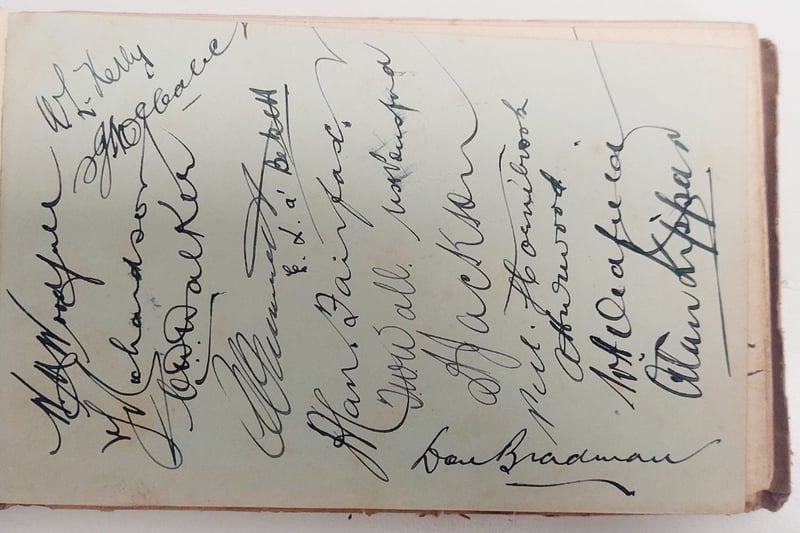 W. L. Kelly
S. J. McCabe
W. M. Woodfull
V. Y. Richardson
C. W. Walker
C. V. Grimmett
E. L. a'Beckett
Alan. Fairfax.
T. W. Wall.
W. H. Ponsford
A Jackson
P. M. Hornibrook
A Hurwood.
W A Oldfield
Alan Kippax
Don Bradman